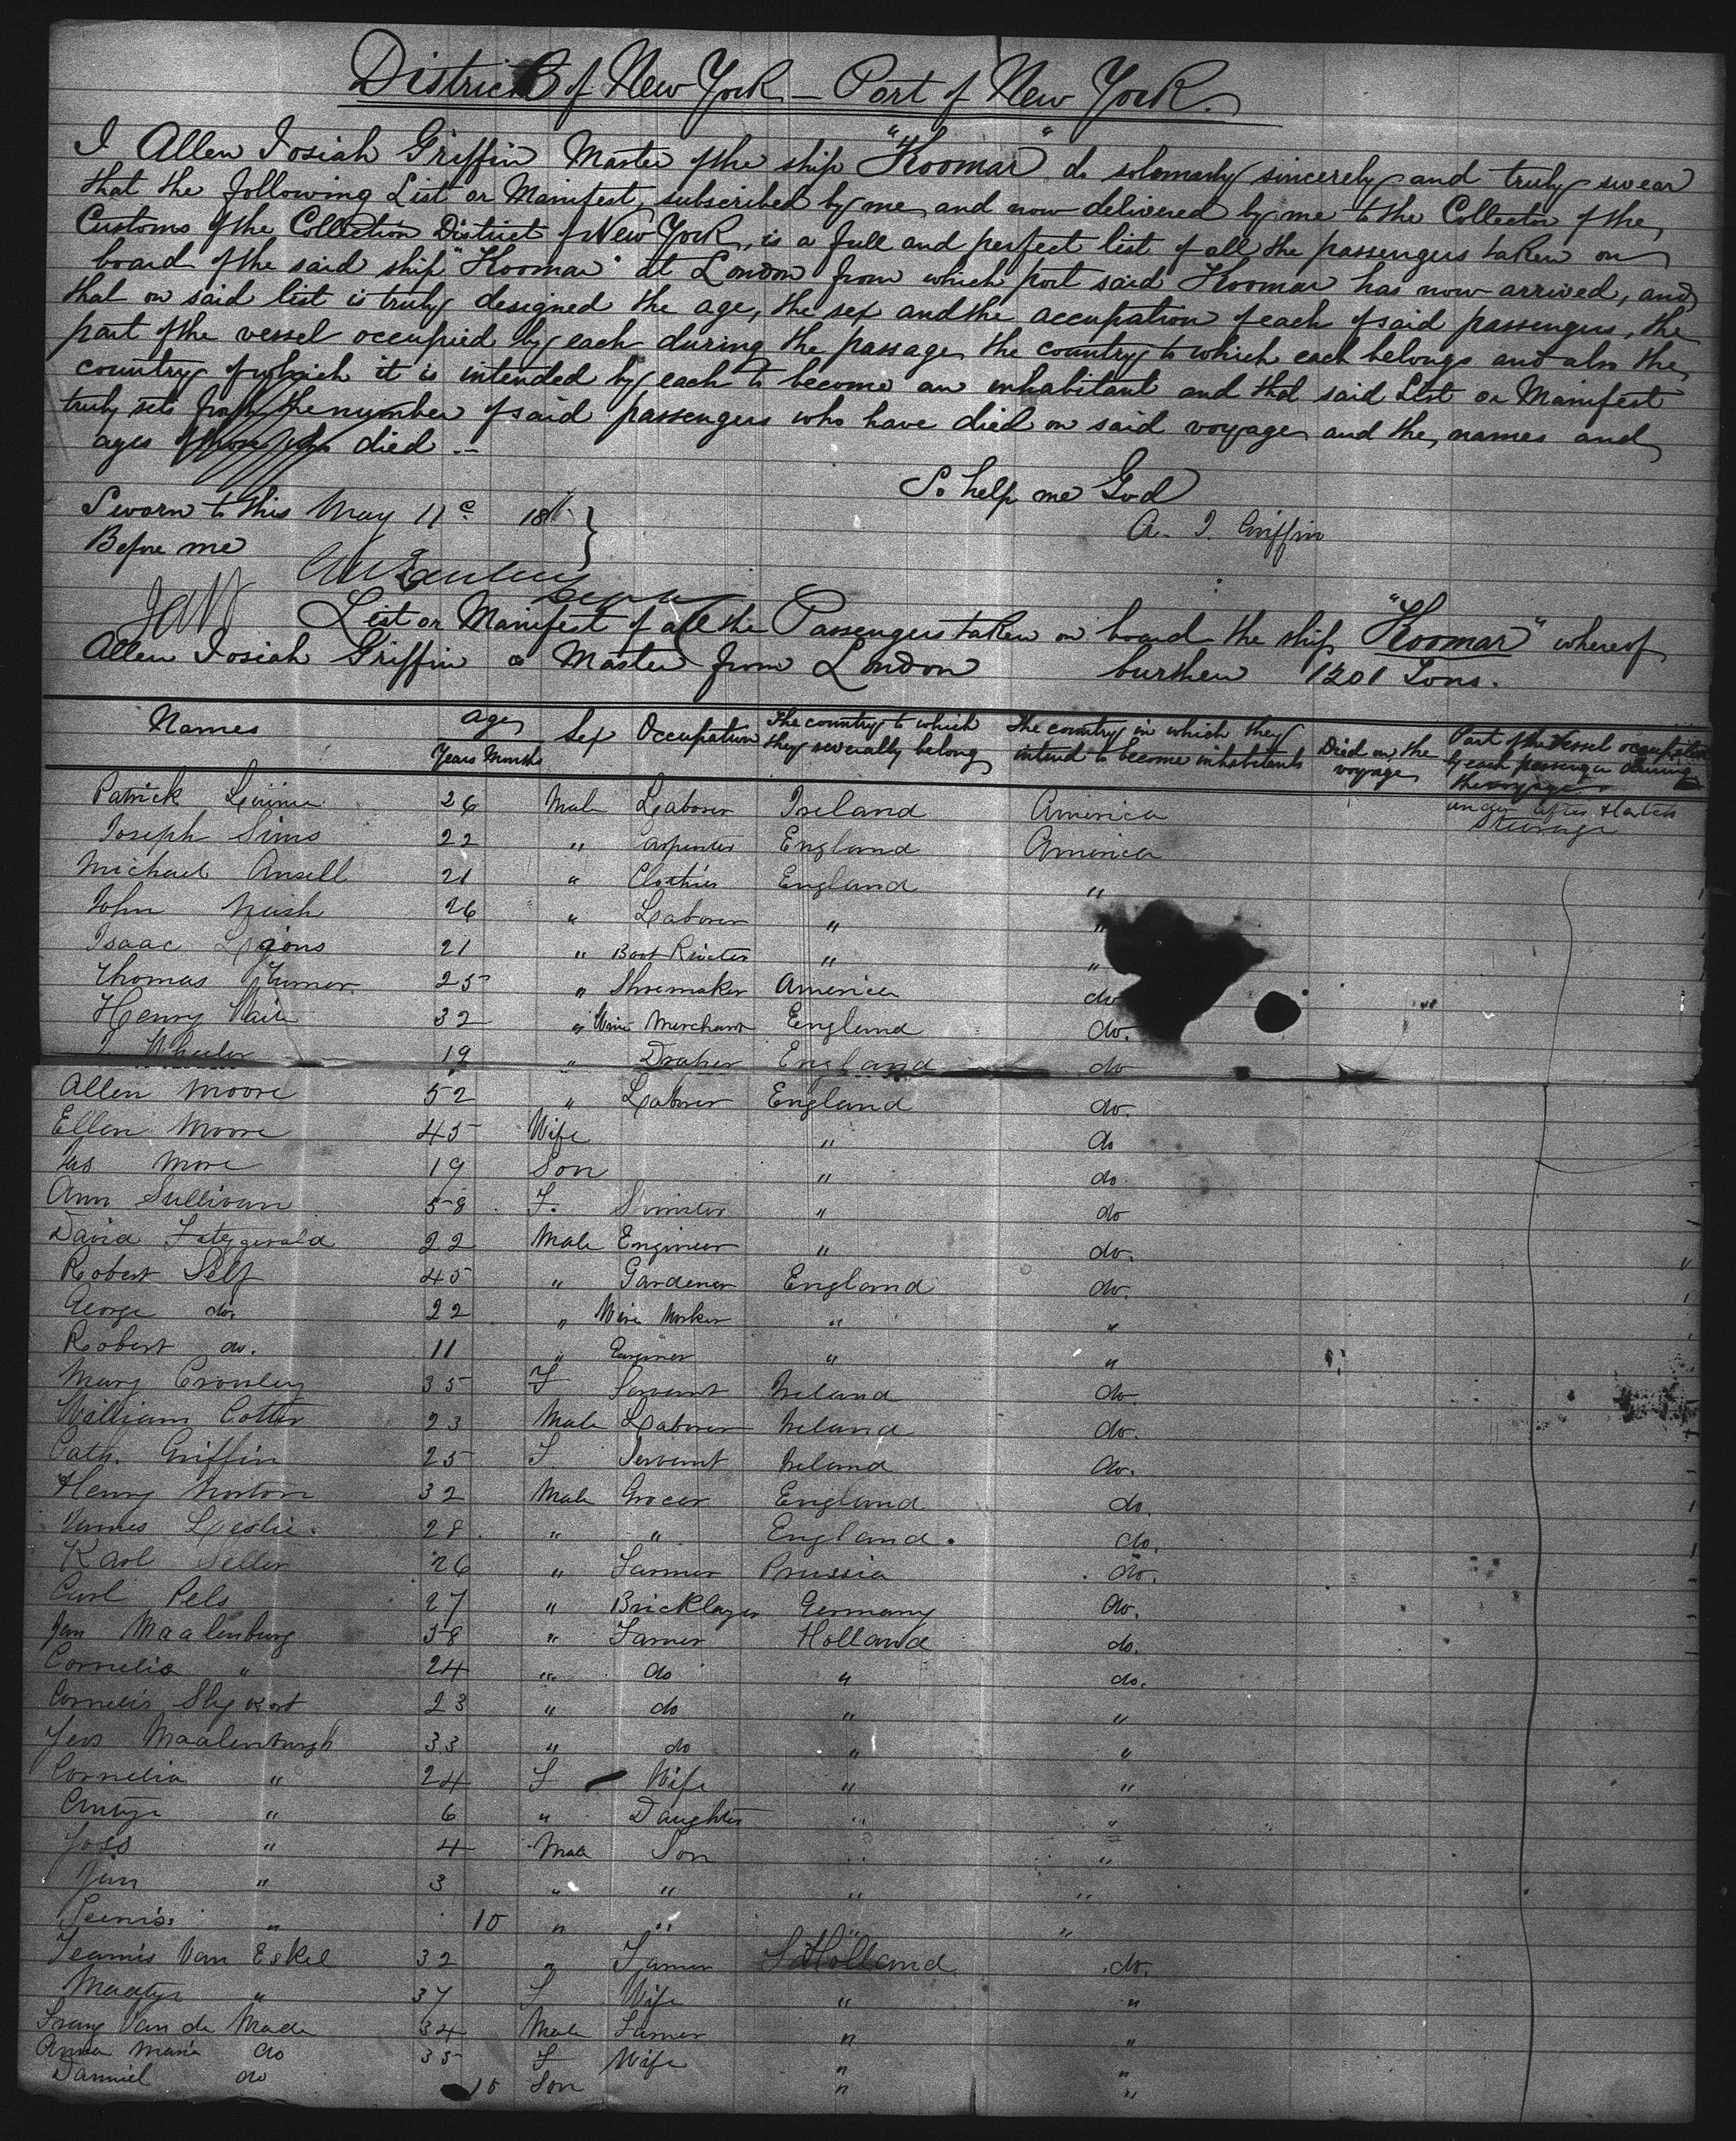 District of New York – Port of New York.
I Allen Josiah Griffin Master of the ship "Koomar" do solemnly sincerely and truly swear
that the following List or Manifest, subscribed by me and now delivered by me to the Collector of the
Customs of the Collection District of New York, is a full and perfect list of all the passengers taken on
board of the said ship "Koomar" at London from which port said Koomar has now arrived, and
that on said list is truly designed the age, the sex and the occupation of each of said passengers, the
part of the vessel occupied by each during the passage, the country to which each belongs and also the
country of which it is intended by each to become an inhabitant and that said List or Manifest
truly sets forth the number of said passengers who have died on said voyage and the names and
ages of those who died .–
So help me God
Sworn to this May 11
A. J. Griffin
Before me
List or Manifest of all the Passengers taken on board the ship "Koomar" whereof
Allen Josiah Griffin is Master from London burthen 1201 Tons.
Names Age Years Months Sex Occupation The country to which they severally belong The country in which they intend to become inhabitants Died on the voyage Part of the vessel occupied by each passenger during the voyage
Patrick 26 Male Laborer Ireland America under after Hatch
Joseph Sims 22 " Carpenter England America Steerage
Michael Ansell 21 " Clothier England "
John Nush 26 " Laborer " "
Isaac Lyons 21 " Boot Riveter " "
Thomas Turner 25 " Shoemaker America do
Henry Vaile 32 " Wine Merchant England do.
J. Wheeler 19 " Draper England do
Allen Moore 52 " Laborer England do.
Ellen Moore 45 Wife " do
Jas More 19 Son " do
Ann Sullivan 58 F. " do
David Fitzgerald 22 Male Engineer " do.
Robert Self 45 " Gardener England do.
George do. 22 " Wire Worker " "
Robert do. 11 " Engineer " "
Mary Cronley 35 F Servant Ireland do.
William Cotter 23 Male Laborer Ireland do.
Cath. Griffin 25 F. Servant Ireland do.
Henry Norton 32 Male Grocer England do.
James Leslie. 28 " " England. do.
Karl Seller 26 " Farmer Prussia do.
Carl Pels 27 " Bricklayer Germany do.
Jan Maalenburg 38 " Farmer Holland do.
Cornelis " 24 " do " do.
Cornelis Slykoort 23 " do " "
Jess Maalenburgh 33 " do " "
Cornelia " 24 F Wife " "
" 6 " Daughter " "
Joss " 4 Male Son " "
Jan " 3 " " " "
Teunis " 10 " " " "
Teunis Van Eskel 32 " Farmer Holland do.
Maatye " 37 F Wife " "
Franz Van de Made 34 Male Farmer " "
Anna Maria do 35 F Wife " "
Danniel do 10 Son " "